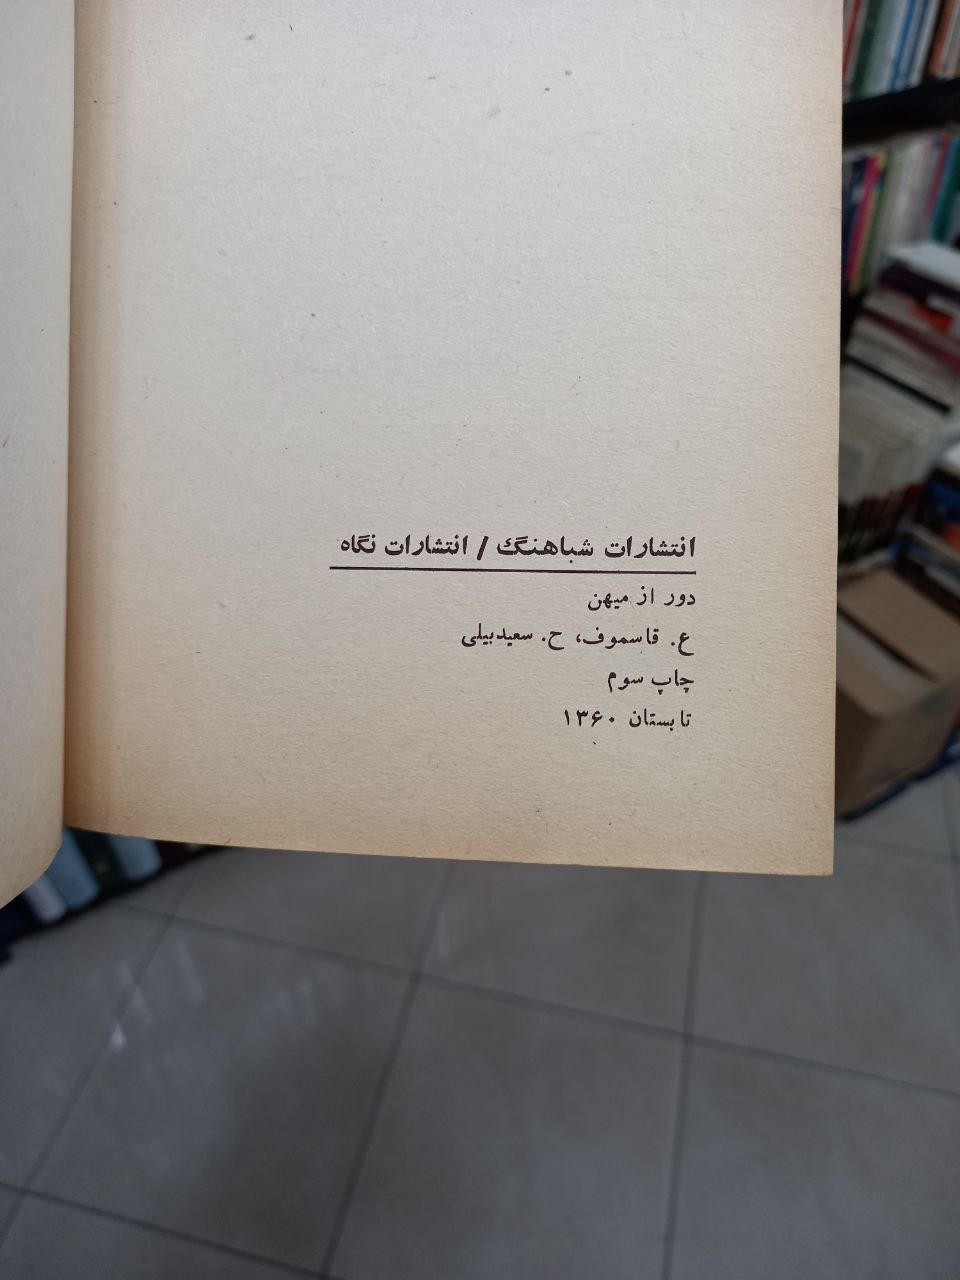 انتشارات شباهنگ / انتشارات نگاه
دور از میهن
ع. قاسموف، ح. سعیدبیلی
چاپ سوم
تابستان ۱۳۶۰